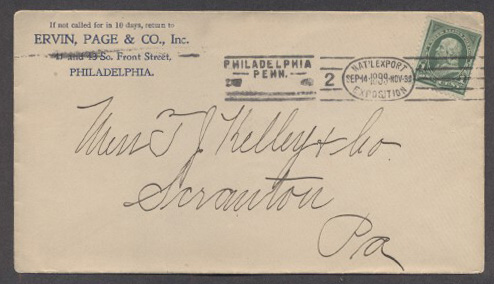 If not called for in 10 days, return to
ERVIN, PAGE & CO., Inc.
41 and 43 So. Front Street,
PHILADELPHIA.
PHILADELPHIA
PENN.
2
NAT'L EXPORT
SEP-14-1899-NOV-30
EXPOSITION
Mess T J Kelley & Co
Scranton
Pa